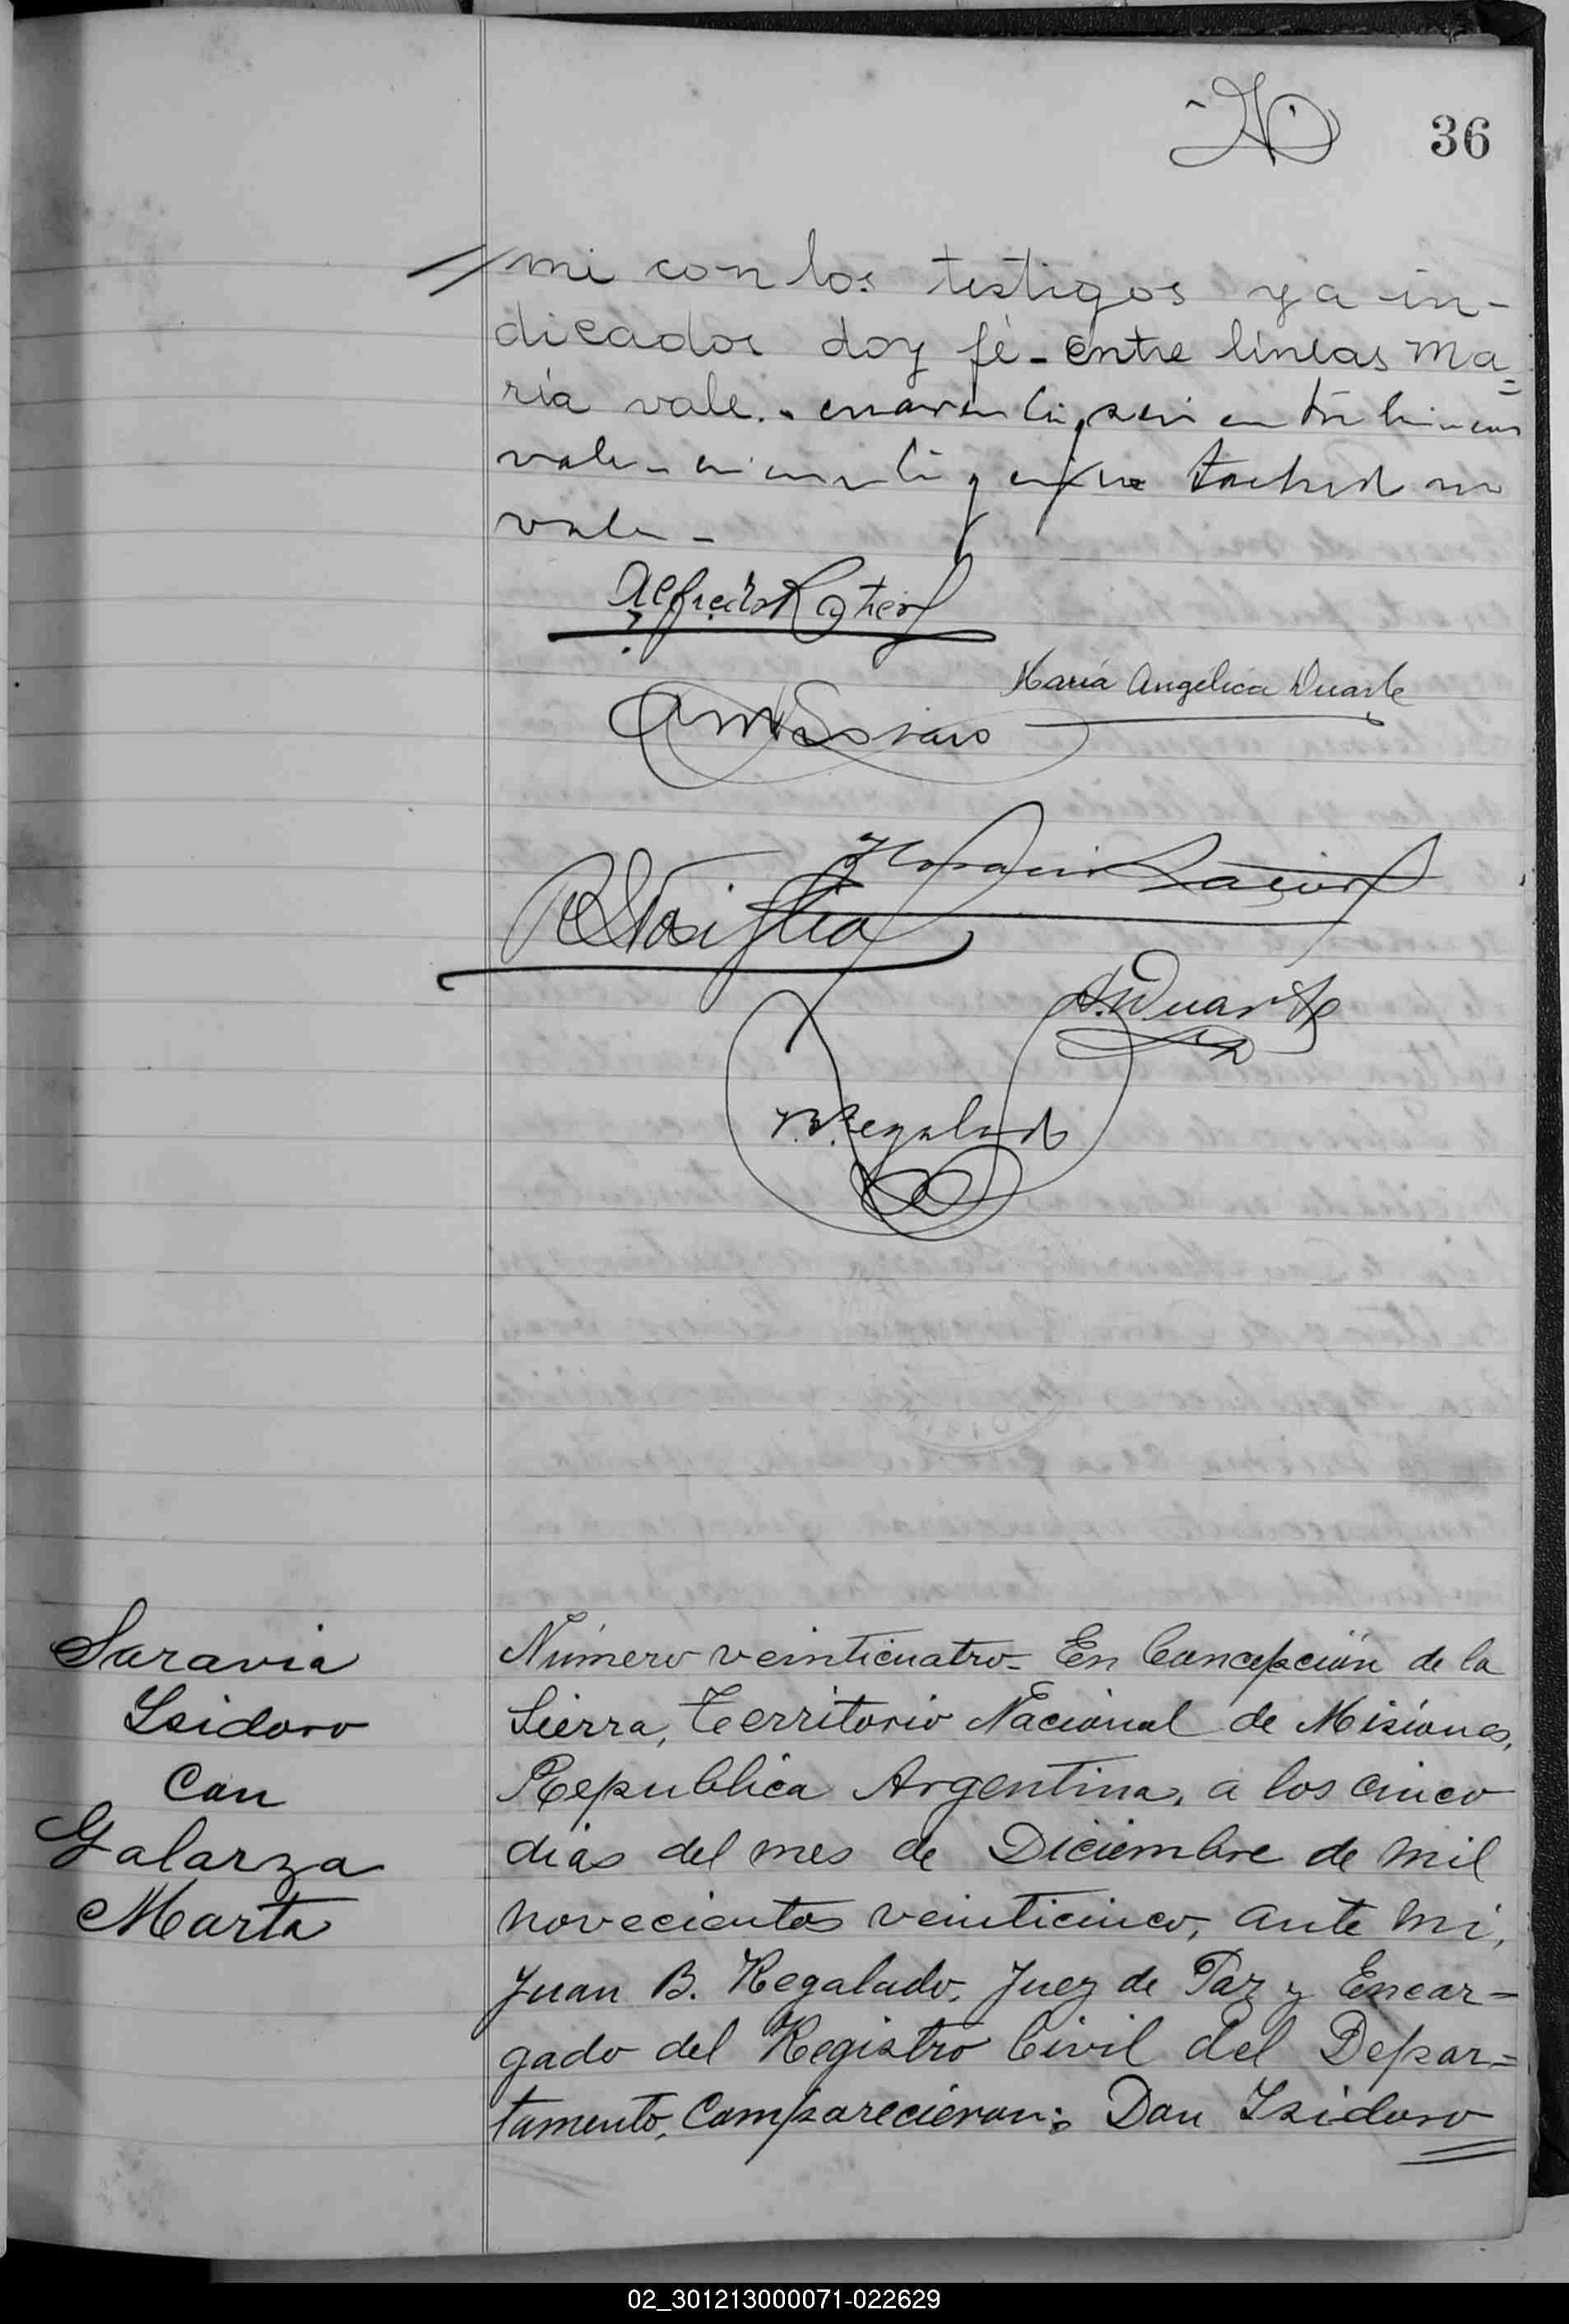 36
mi con los testigos ya in-
dicados doy fé - entre lineas Ma=
ria vale. - cuarenta y seis entre lineas
vale - cincuenta y cinco tachado no
vale -
María Angélica Duarte
A. Duarte
B. Regalado
Saravia
Isidoro
Con
Galarza
Marta
Número veinticuatro - En Concepción de la
Sierra, Territorio Nacional de Misiones,
Republica Argentina, a los cinco
dias del mes de Diciembre de mil
novecientos veinticinco, ante mi,
Juan B. Regalado, Juez de Paz y Encar-
gado del Registro Civil del Depar=
tamento, Comparecieron: Don Isidoro
02_301213000071-022629